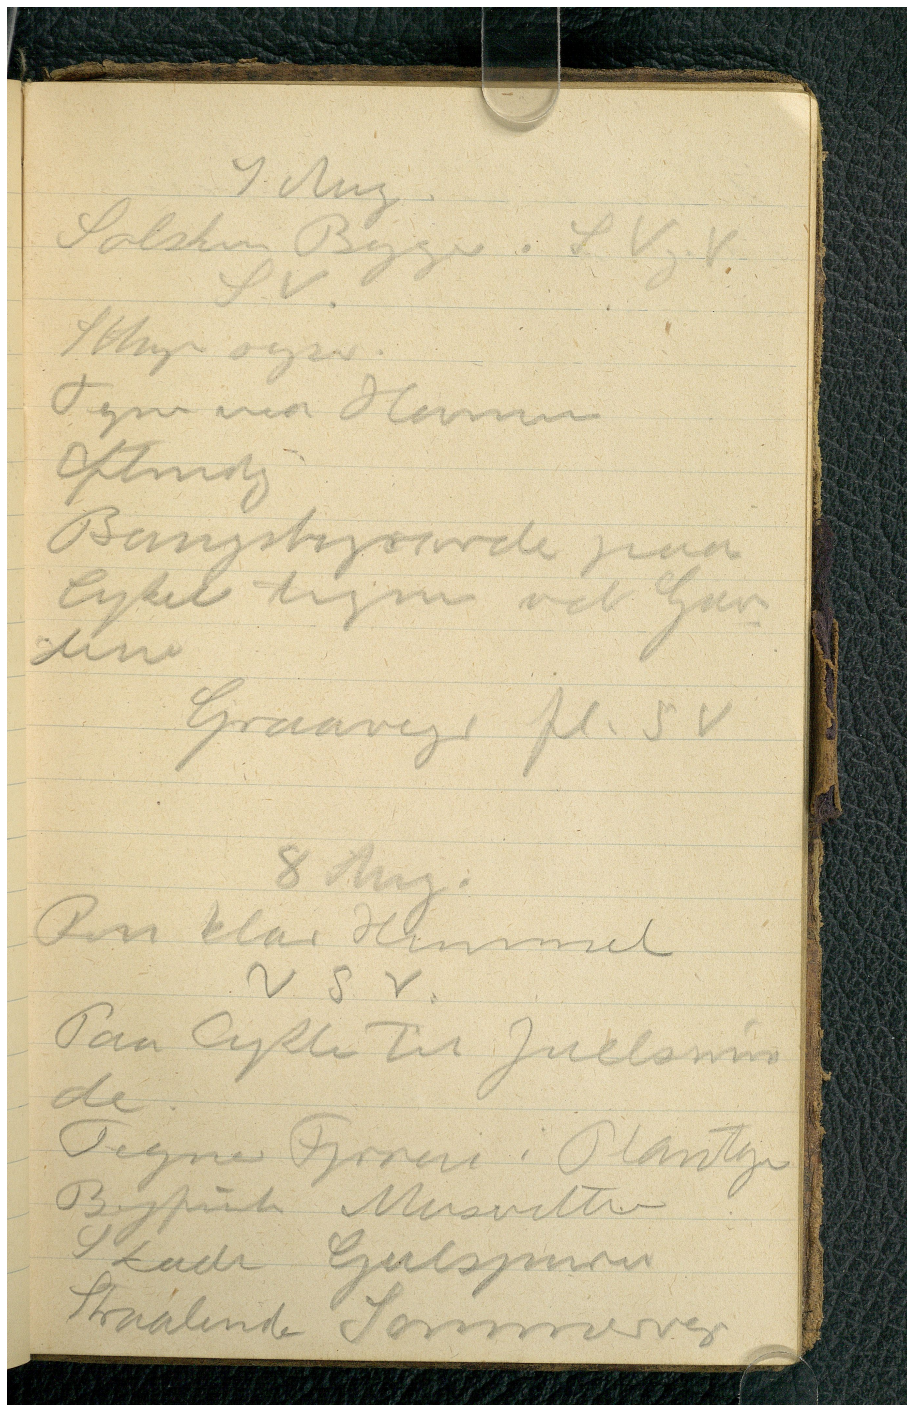 7 Aug.
Solskin Byger. S V g. V
S V.
Skyer
Tegne ved Havnen
Eftmdg
Bangsbogaarde paa
Cykel tegne ved Gaar
dene
Graavejr fl. S V
8 Aug.
Ren klar Himmel
V S V.
Paa Cykle til Juelsmin
de.
Tegne Fyrren i Plantge
Bogfinke Musvitter
Skade Gulspurv
Straalende Sommervejr